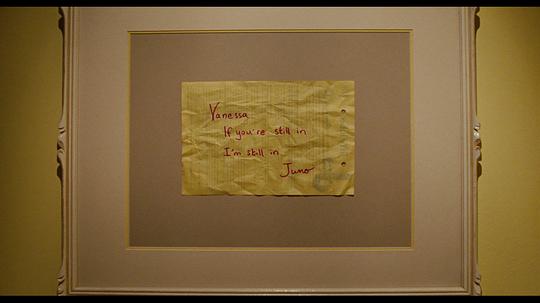 Vanessa
If you're still in
I'm still in
Juno